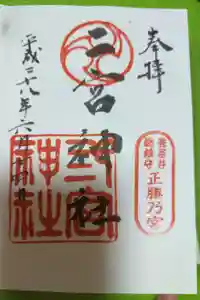 奉拝
三宮神社
平成二十八年六月十五日
正勝乃宮
三宮神社